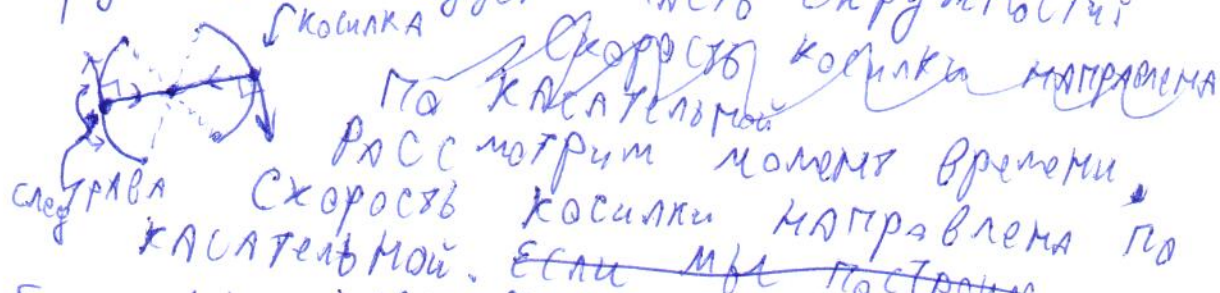 окружности
косилка
Скорость косилки направлена
по касательной
Рассмотрим момент времени.
след трава Скорость косилки направлена по
касательной. Если мы построим